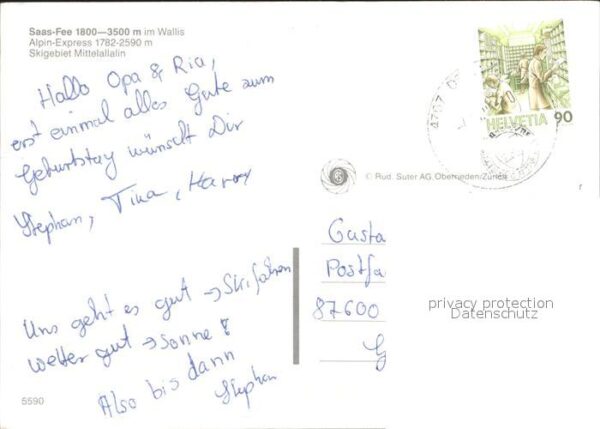 Saas-Fee 1800—3500 m im Wallis
Alpin-Express 1782-2590 m
Skigebiet Mittelallalin
Hallo Opa & Ria,
erst einmal alles Gute zum
Geburtstag wünscht Dir
Stephan, Tina, Harry
HELVETIA 90
© Rud. Suter AG, Oberrieden/Zürich
Uns geht es gut → Skifahren
wetter gut → Sonne!
Also bis dann
Stephan
Gusta
Postfa
87600
privacy protection
Datenschutz
5590